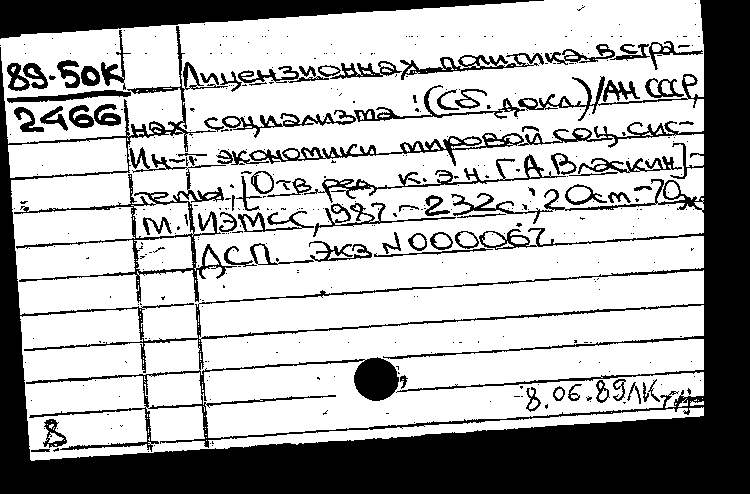 89-50К
2466
Лицензионная политика в стра=
нах социализма : (Сб. докл.)/АН СССР,
Ин-т экономики мировой соц. сис-
темы; [Отв. ред. к.э.н. Г.А. Власкин]=
М. : ИЭМСС, 1987. - 232с.; 20см.-70экз
ДСП. Экз. N000067.
8.06.89 ЛК
8